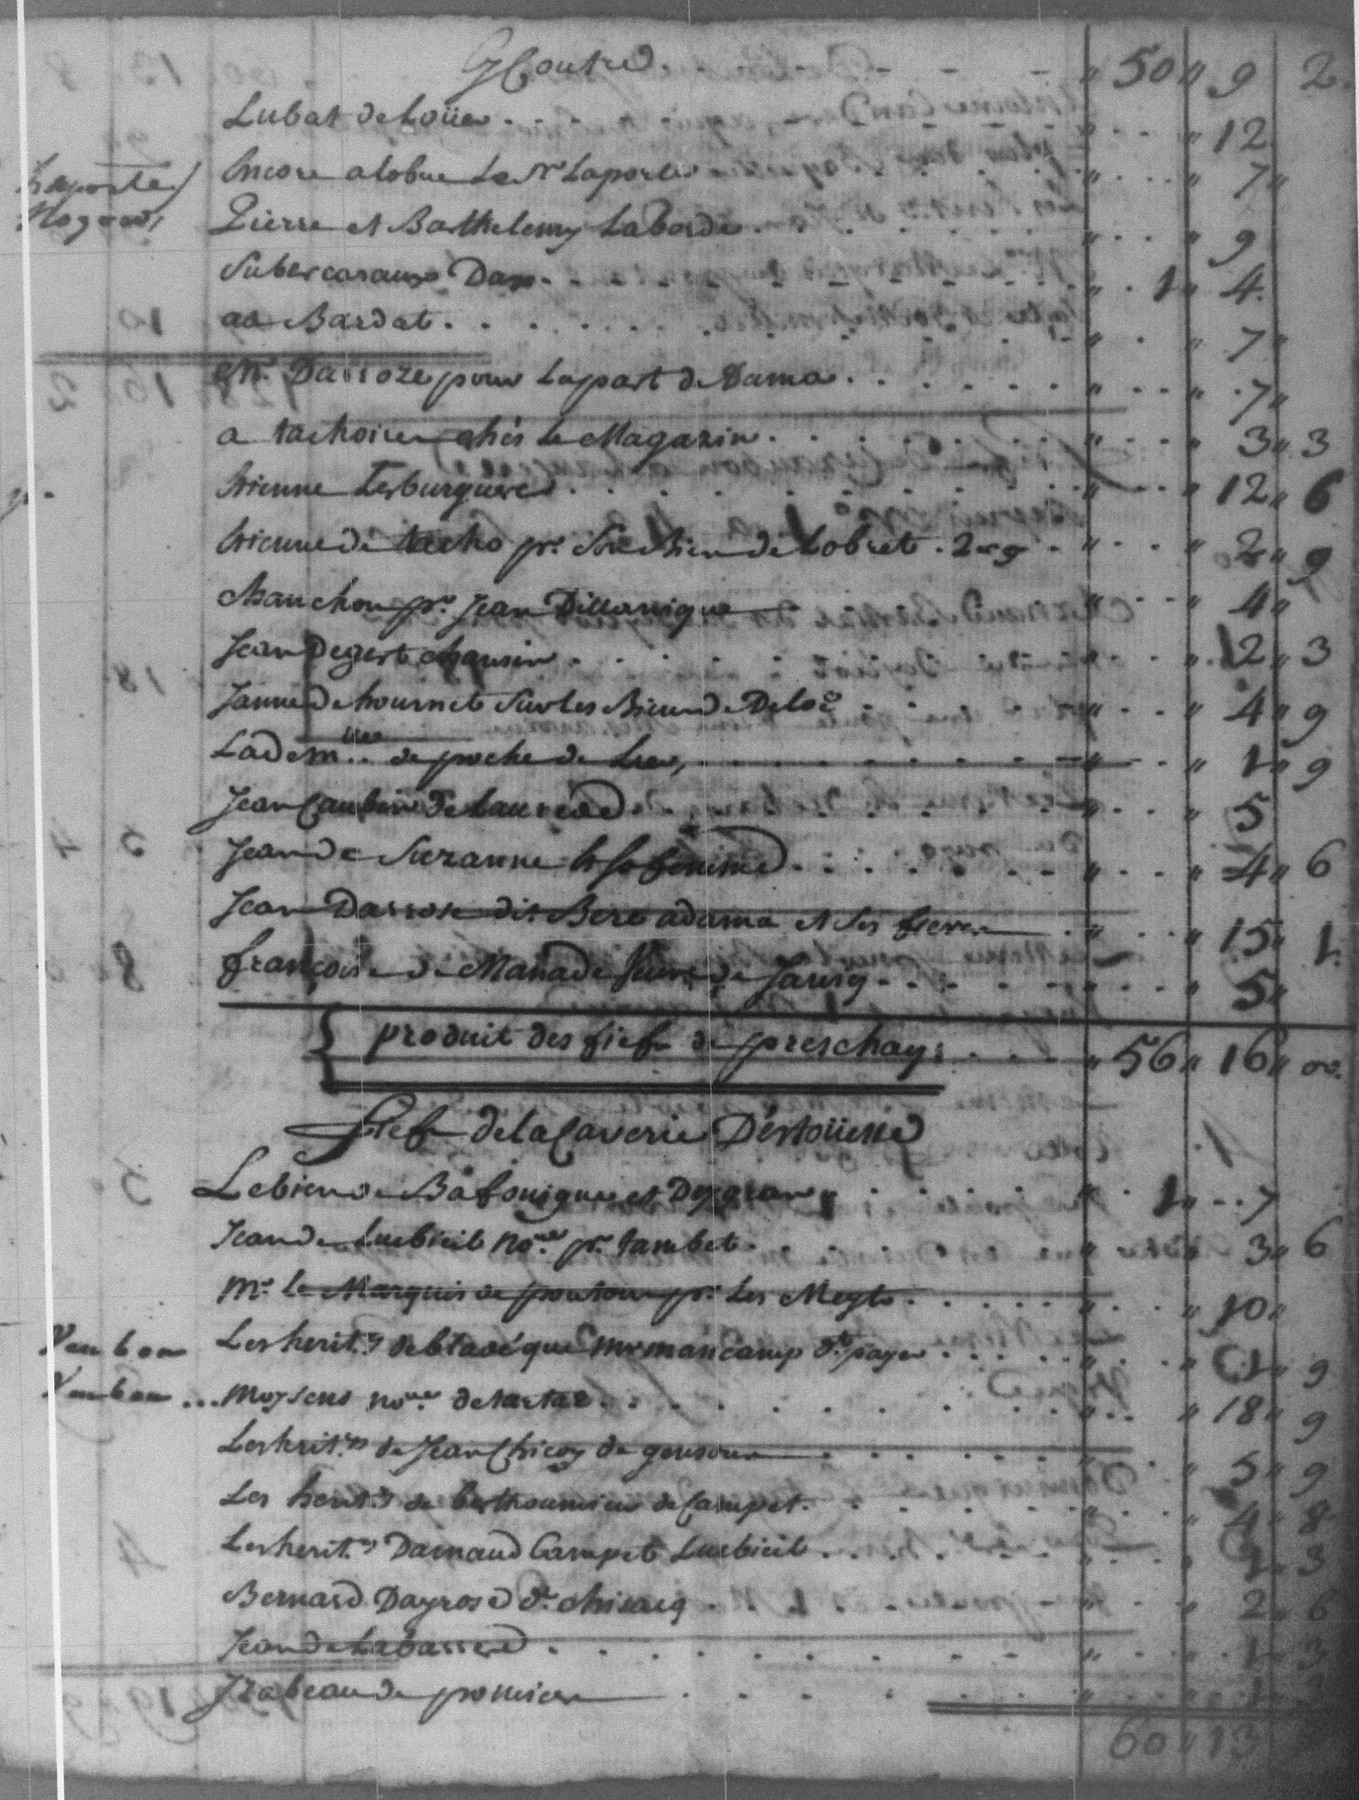 Ci Contre. . . . . " 50 " 9 2
Lubat de Loüer . . . " 12
Encore a lobue Le Sr Laporte " 7 "
Laporte
Pierre et Barthelemy Laborde . . . " 9
Subercaraux Dax . . . " 1 " 4
aa Bardat . . . . . " 7 "
Mr. Darroze pour Lapart de Dama . . . . " 7 "
a tachoire chés le Magazin . . . . " 3 " 3
Etienne Lesburgueres . . . . " 12 " 6
Etienne de tacho pr. Son Bien de Lobret . 2 " 9 . " 2 " 9
Manchon pr. Jean Dillarrigue " 4 "
Jean Degert chausin . . . . " 12 " 3
Janne de hournets Sur les Biens de Deloc . " 4 " 9
Lade mlle de poche de . . . . " 1 " 9
Jean Caubin de Laurede . . . " 5
Jean de Suzanne et sa femme . . . . " 4 " 6
Jean Darrose dit Bere adama et Ses freres " 15 " 1
françoise de Manade Veuve de . . . . " 5 "
produit des fiefs de preschaq : . . . " 56 " 16 " 00
Fiefs de la Caverie D'estoüesse
Le bien de et . . . . " 1 " . . 7
Jean de Lucbieil No.re pr. tambet . " " 3 " 6
Mr. le Marquis de poutonx pr. Les . . . . " " 10 "
Les herit.rs de mr mancamp dt. payer . . . . " 1 " 9
Moysens no.re de tartas . . . . " 18 " 9
Les herit.rs de Jean Chicoy de . . . " 5 " 9
Les herit.rs de berthoumieu de Campet . . . . " 4 " 8
Les herit.rs Darnaud Campet Lucbieil . . . . " 1 " 3
Bernard Dayrose dt. chicoy . . . " 2 " 6
Jean de Labarrere . . . . " 1 " 3
Izabeau de . . . . " 1 " 3
60 " 13